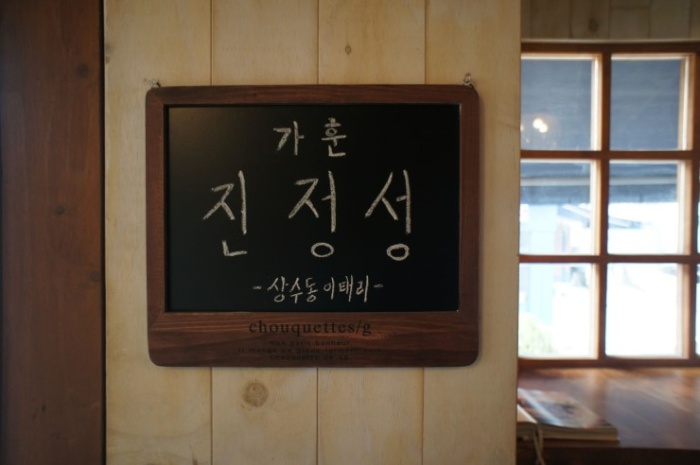 가훈
진정성
-상수동이태리-
chouquettes/g